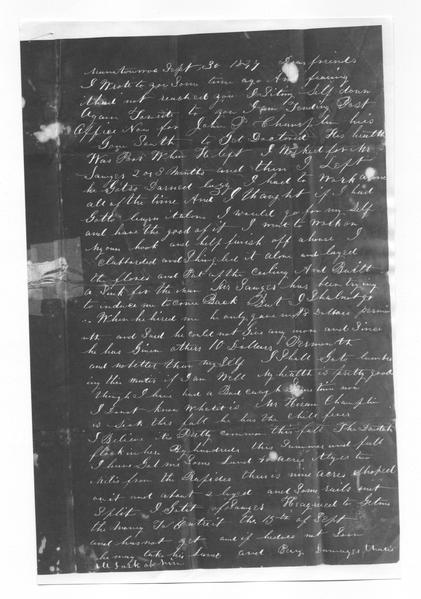 Manitowoc Sept 30 1847 Dear friends
I Wrote to you Some time ago And fearing
that not reached you I Siting Self down
Again to Send to you I am Tending Post
Office Now for John P Champlin his
Gone South to Get Doctored His health
Was Poor When He left I Worked for Mr
Sanger 2 or 3 Months and then I Left
he Gets so Darned lazy I had to Work alone
all of the time And I thought if I had
Gotto alone I would go for my Self
and have the good of it I went to work on
My own hook and help finish off a house
Clabbarded and Shingled it alone and layed
the floores and Put up the Ceiling And Built
a Sink for the Mr Sanger has been trying
to induce me to come Back But I Shal not go
When he hired me he only gave me 8 Dollars per mon
th and Said he could not Give any more and Since
he has Given others 10 Dollars Per month
and no better than my Self I Shall Gete lumber
ing this winter if I am Well My health is pretty good
though I have had a Bad caugh Some time now
I do not know What it is Mr Hiram Champlin
is Sick this fall he has the Chill fever
I Believe its Pretty common this fall The
flock in here By hundreds this Summer and fall
I have Got me Some Land 40 acres
Miles from the Rapides there is nine acres chopped
on it and about loged and Some rails cut
& Split I Got it of Sanger He agreed to Get me
the money To Enter it the 15th of Sept
and has not yet and if he does not Soon
he may take his land and Pay Damages